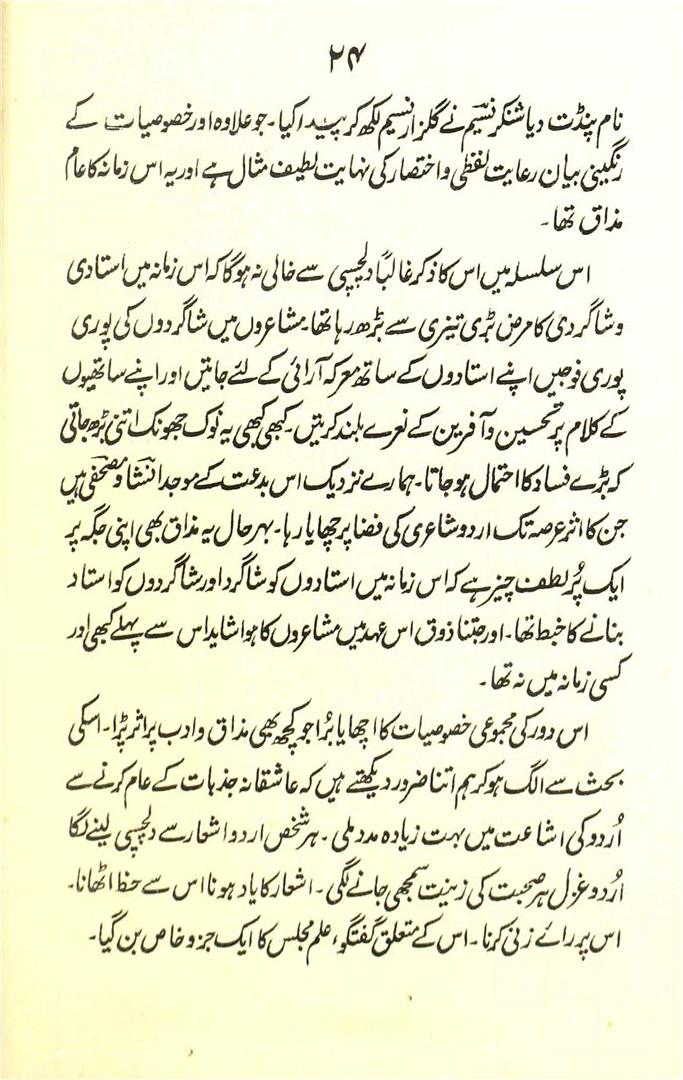 ۲۴
نام پنڈت دیا شنکر نسیم نے گلزار نسیم لکھ کر پیدا کیا۔ جو علاوہ اور خصوصیات کے
رنگینی بیان رعایت لفظی و اختصار کی نہایت لطیف مثال ہے اور یہ اس زمانہ کا عام
مذاق تھا۔
اس سلسلہ میں اس کا ذکر غالباً دلچسپی سے خالی نہ ہوگا کہ اس زمانہ میں استادی
و شاگردی کا مرض بڑی تیزی سے بڑھ رہا تھا۔ مشاعروں میں شاگردوں کی پوری
پوری فوجیں اپنے استادوں کے ساتھ معرکہ آرائی کے لئے جاتیں اور اپنے ساتھیوں
کے کلام پر تحسین و آفرین کے نعرے بلند کرتیں۔ کبھی کبھی یہ نوک جھونک اتنی بڑھ جاتی
کہ بڑے فساد کا احتمال ہو جاتا۔ ہمارے نزدیک اس بدعت کے موجد انشاؔ و مصحفیؔ ہیں
جن کا اثر عرصہ تک اردو شاعری کی فضا پر چھایا رہا۔ بہر حال یہ مذاق بھی اپنی جگہ پر
ایک پُر لطف چیز ہے کہ اس زمانہ میں استادوں کو شاگرد اور شاگردوں کو استاد
بنانے کا خبط تھا۔ اور جتنا ذوق اس عہد میں مشاعروں کا ہوا شاید اس سے پہلے کبھی اور
کسی زمانہ میں نہ تھا۔
اس دور کی مجموعی خصوصیات کا اچھا یا بُرا جو کچھ بھی مذاق و ادب پر اثر پڑا۔ اسکی
بحث سے الگ ہو کر ہم اتنا ضرور دیکھتے ہیں کہ عاشقانہ جذبات کے عام کرنے سے
اُردو کی اشاعت میں بہت زیادہ مدد ملی۔ ہر شخص اردو اشعار سے دلچسپی لینے لگا
اُردو غزل ہر صحبت کی زینت سمجھی جانے لگی۔ اشعار کا یاد ہونا اس سے حظ اٹھانا۔
اس پر رائے زنی کرنا۔ اس کے متعلق گفتگو، علم مجلس کا ایک جزو خاص بن گیا۔